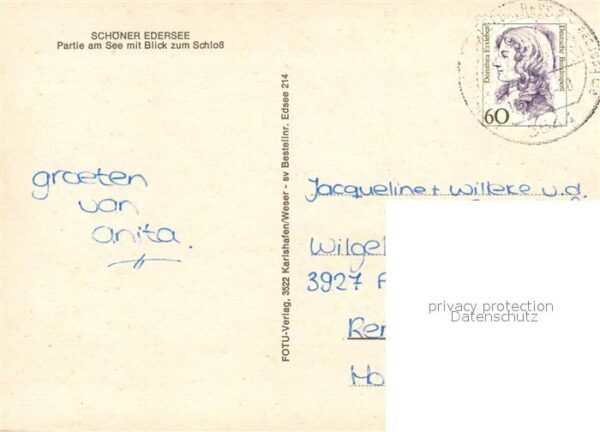 SCHÖNER EDERSEE
Partie am See mit Blick zum Schloß
groeten
van
anita.
FOTU-Verlag, 3522 Karlshafen/Weser - sv Bestellnr. Edsee 214
Dorothea Erxleben
Deutsche Bundespost
60
Jacqueline + Willeke v.d.
Wilgel
3927
Ren
Ho
privacy protection
Datenschutz